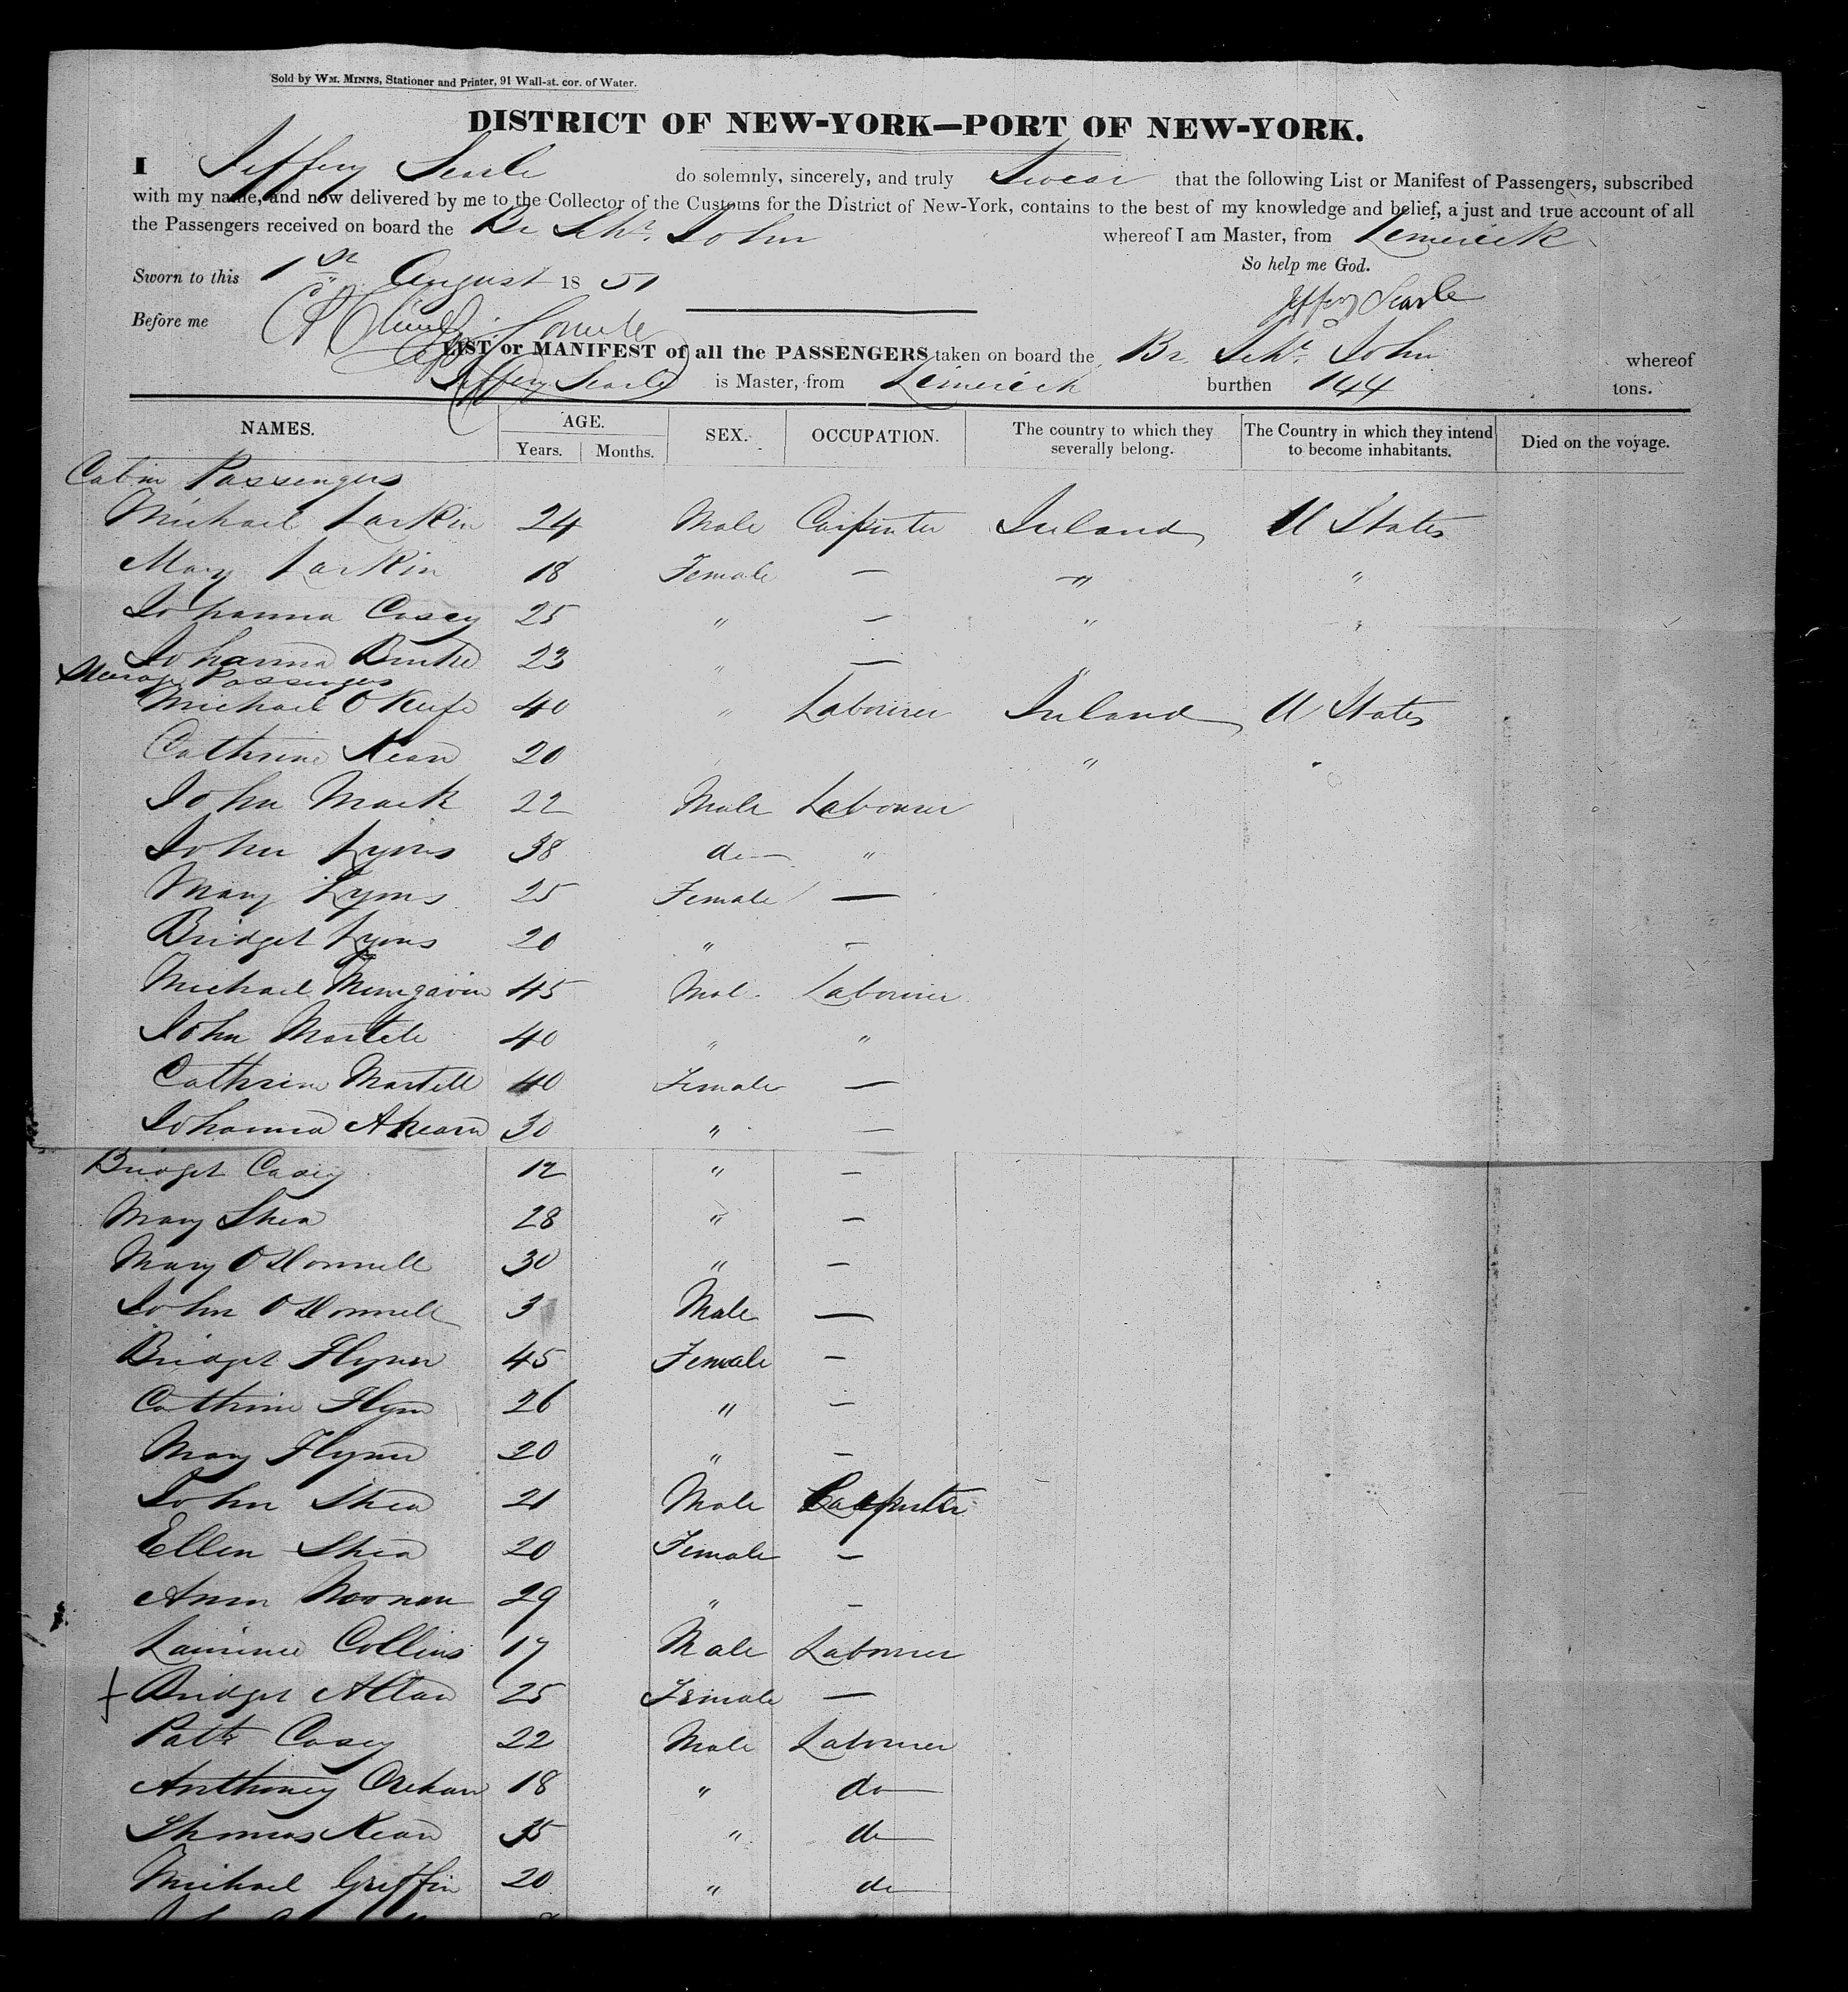 Sold by WM. MINNS, Stationer and Printer, 91 Wall-st. cor. of Water.
DISTRICT OF NEW-YORK—PORT OF NEW-YORK.
I Jeffery Searle do solemnly, sincerely, and truly Swear that the following List or Manifest of Passengers, subscribed
with my name, and now delivered by me to the Collector of the Customs for the District of New-York, contains to the best of my knowledge and belief, a just and true account of all
the Passengers received on board the Br Schr. John whereof I am Master, from Limerick
So help me God.
Sworn to this 1st August 1851
Jeffery Searle
Before me
LIST or MANIFEST of all the PASSENGERS taken on board the Br. Schr. John whereof
Jeffery Searle is Master, from Limerick burthen 144 tons.
NAMES. AGE. Years. Months. SEX. OCCUPATION. The country to which they severally belong. The Country in which they intend to become inhabitants. Died on the voyage.
Cabin Passengers
Michael Larkin 24 Male Carpinter Ireland U States
Mary Larkin 18 Female — " "
Johanna Casey 25 " — " "
Johanna Burke 23 " — "
Steerage Passengers
Michael O Keife 40 " Labourer Ireland U States
Cathrine Kean 20 " "
John Mack 22 Male Labourer
John Lyons 38 do "
Mary Lyons 25 Female —
Bridget Lyons 20 " —
Michael Mungavin 45 Male Labourer
John Martele 40 " "
Cathrine Martell 40 Female —
Johanna Ahearn 30 " —
Bridget Casey 12 " —
Mary Shea 28 " —
Mary O Donnell 30 " —
John O Donnell 3 Male —
Bridget Flynn 45 Female —
Cathrine Flynn 26 " —
Mary Flynn 20 " —
John Shea 21 Male Carpinter
Ellen Shea 20 Female —
Ann Noonan 29 " —
Laurence Collins 17 Male Labourer
Bridget Allan 25 Female —
Patk Casey 22 Male Labourer
Anthoney 18 " do
Thomas Kean 35 " do
Michael Griffin 20 " do